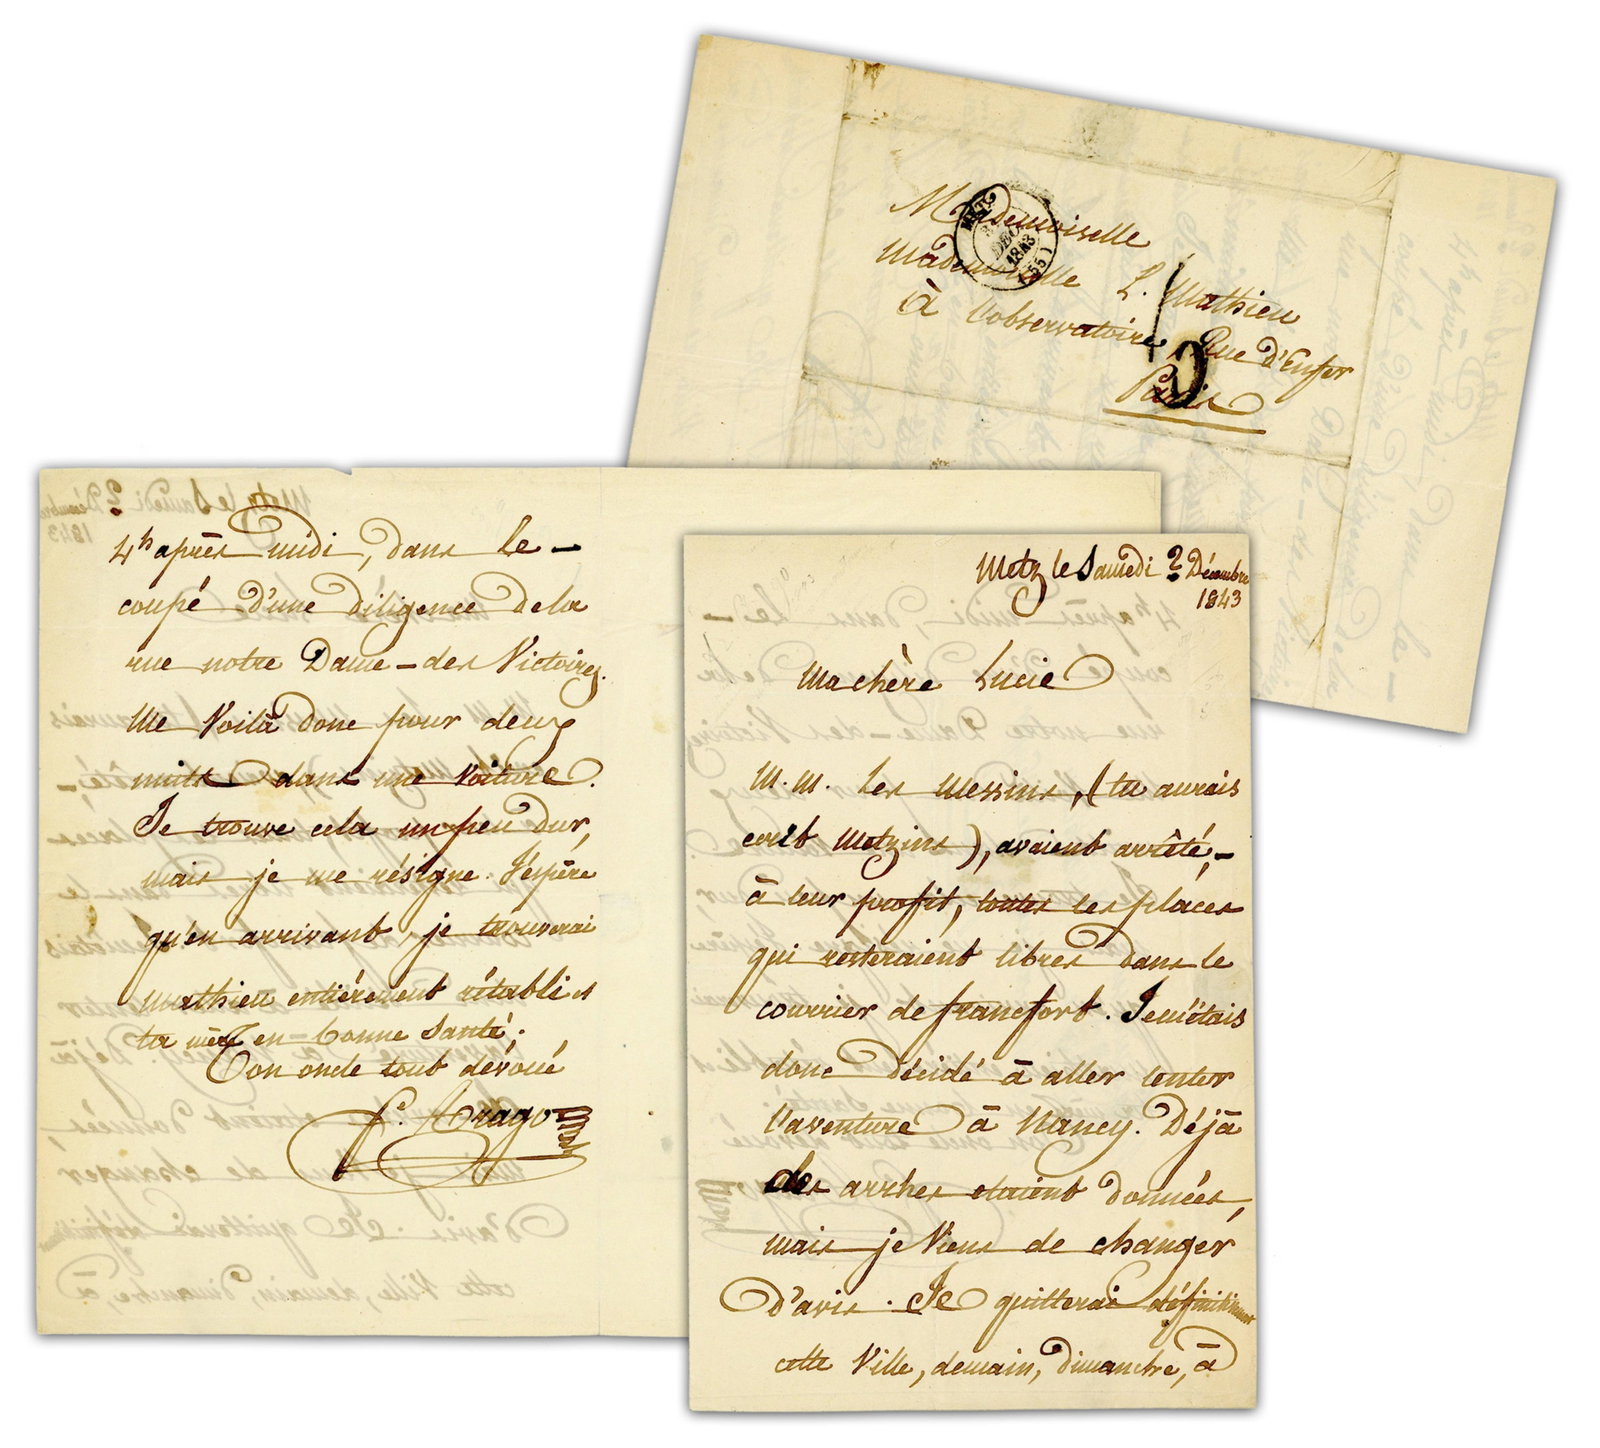 Metz le Samedi 2 Décembre
1843
Ma chère Lucie
M.M. Les Messins, (tu aurais
écrit Metzins), avaient arrêté,
à leur profit, toutes les places
qui resteraient libres dans le
courrier de francfort. Je m'étais
donc décidé à aller tenter
l'aventure à Nancy. Déjà
des arrhes étaient données,
mais je viens de changer
d'avis. Je quitterai définitivement
cette Ville, demain, dimanche, à
4h après midi, dans le
coupé d'une diligence de la
rue notre Dame-des Victoires.
Me Voilà donc pour deux
nuits dans une voiture.
Je trouve cela un peu dur,
mais je me résigne. J'espère
qu'en arrivant je trouverai
mathieu entièrement rétabli et
ta mère en bonne Santé.
Ton oncle tout dévoué
f. Arago
Mademoiselle
Mademoiselle L. Mathieu
à l'observatoire, Rue d'Enfer
Paris
METZ
DEC
1843
(55)